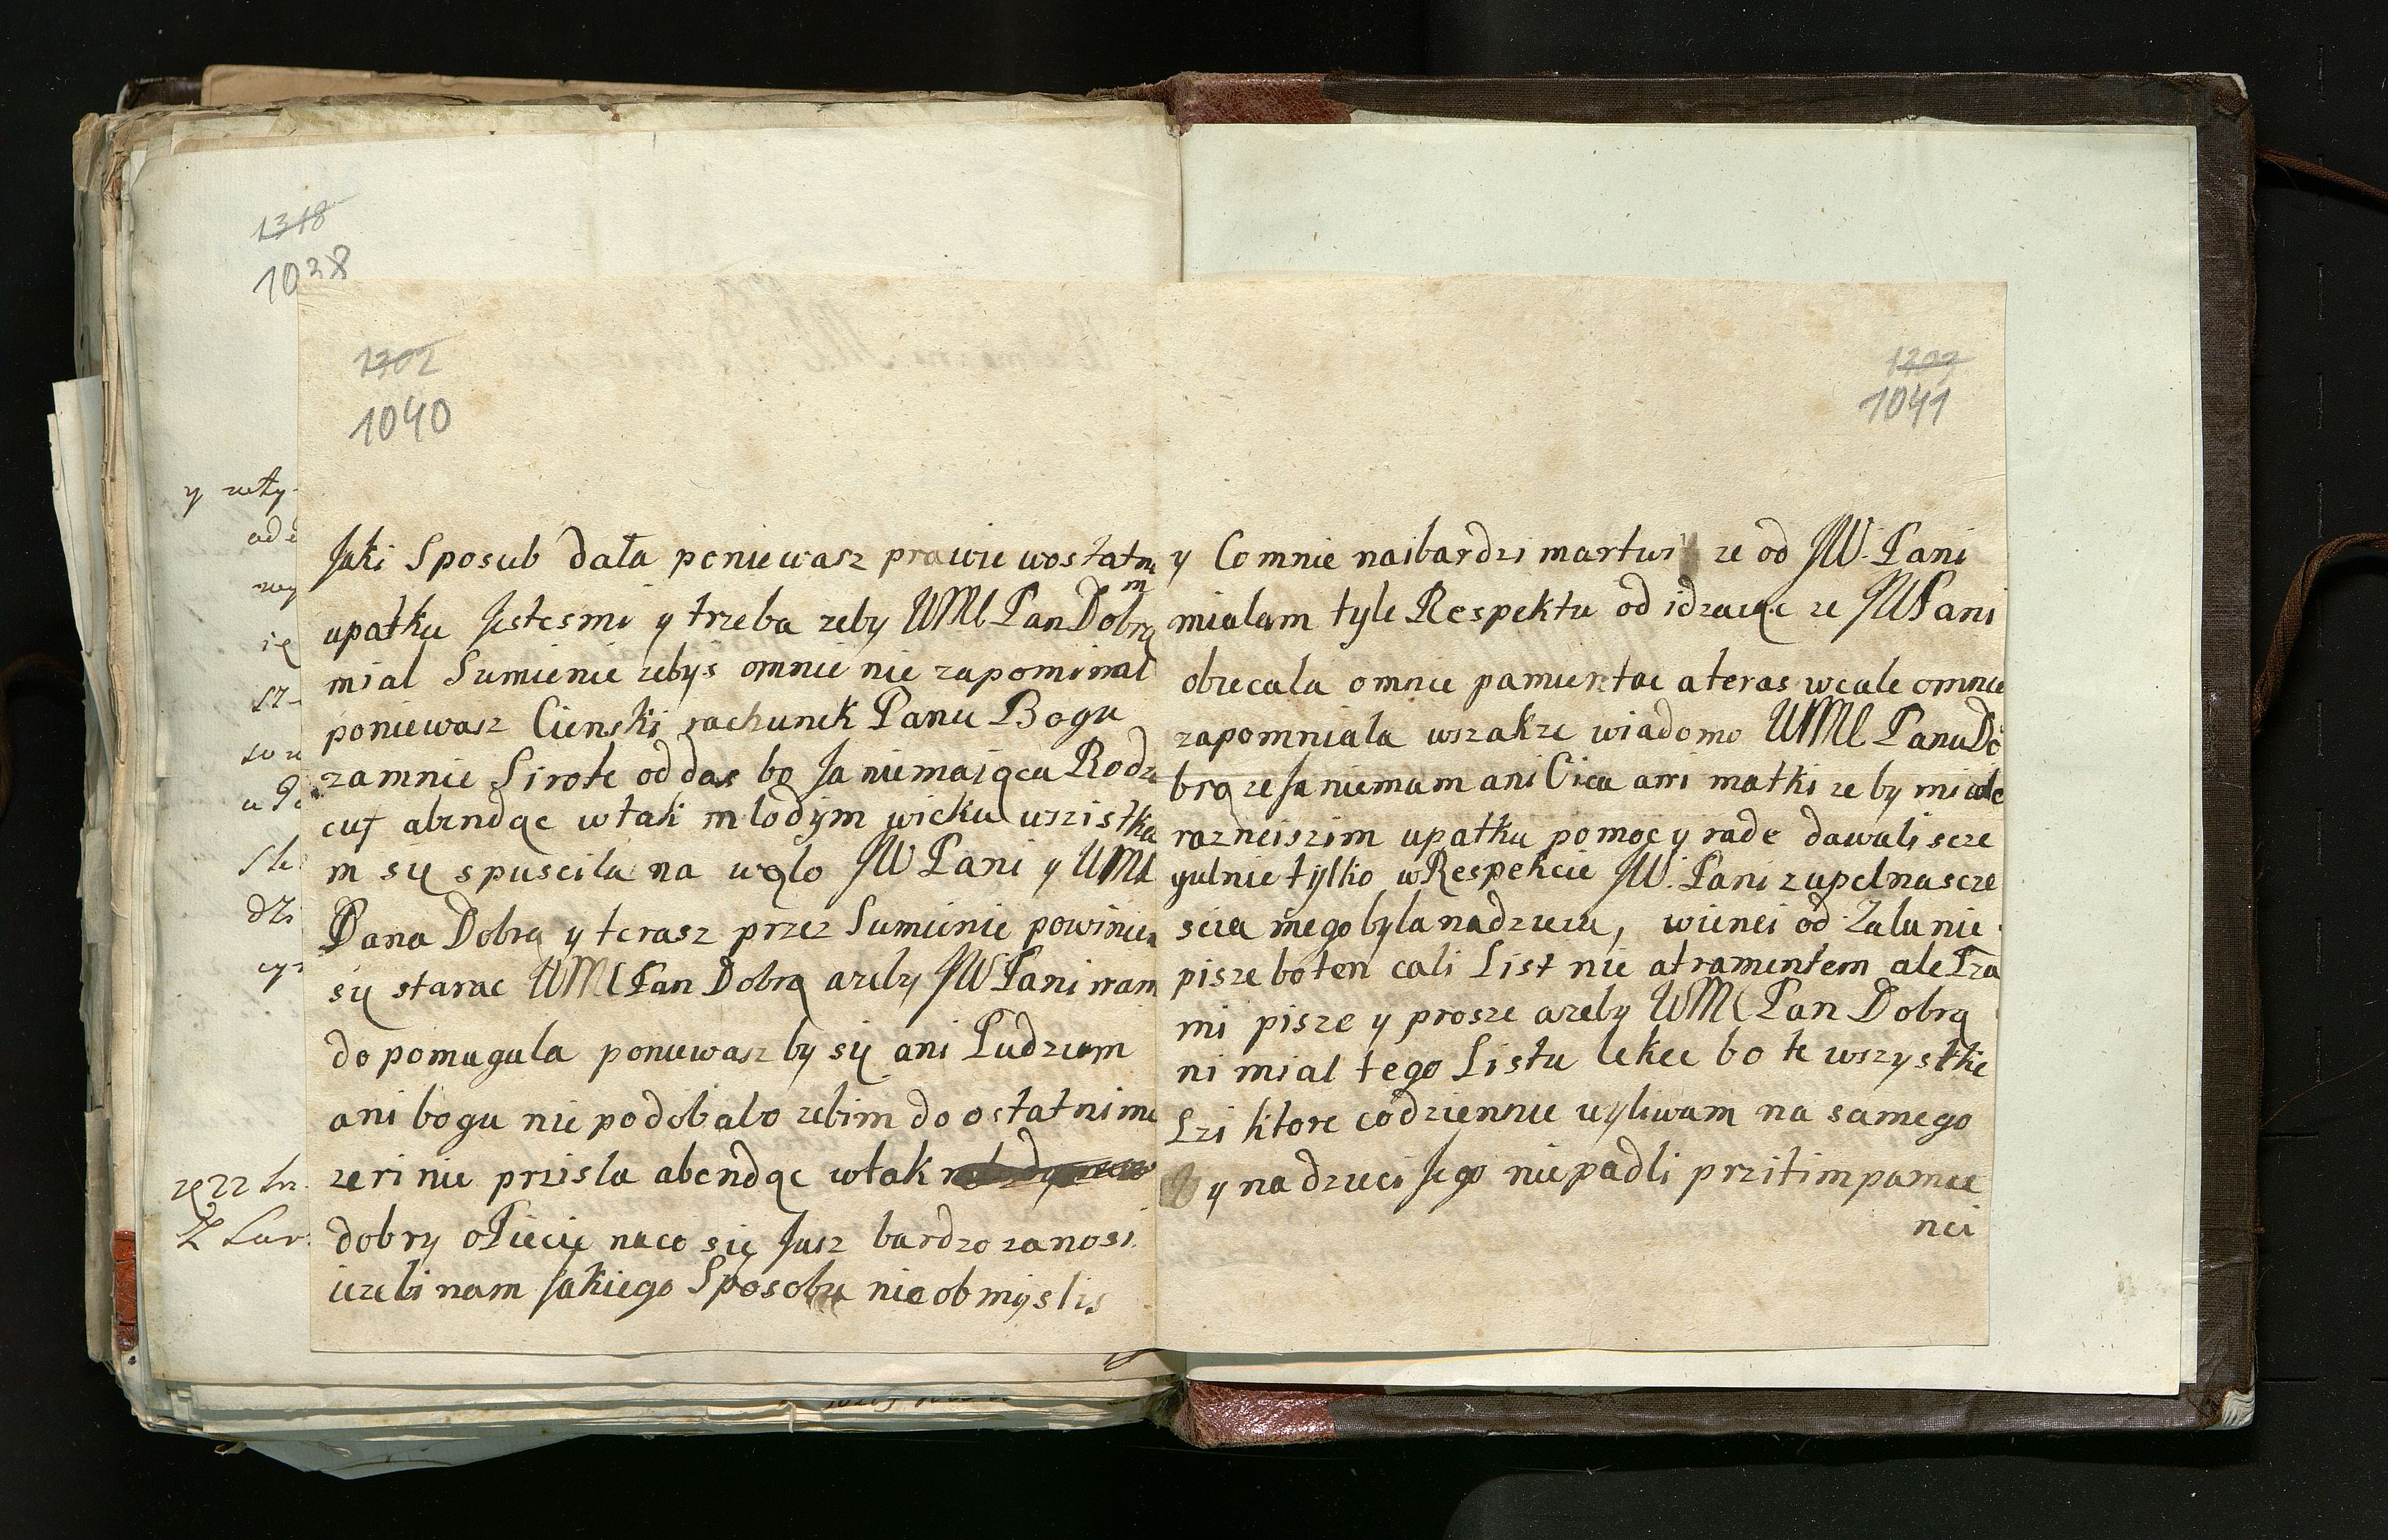 1318
1038
y usty-
ad
wy
ię
sz-
dzi
1302
1040
Jaki Sposub dała poniewasz prawie wostatni
m
upatku Jestesmi y trzeba zeby WMC Pan Dobrą
mial Sumienie zebys omnie nie zapominal
poniewasz Cienski rachunek Panu Bogu
zamnie Sirote oddas bo Ja niemaiącu Rodzi
cuf abendąc wtak mlodym wieku wszistka
m się spuscila na wąlo JW Pani y WMC
Pana Dobrą y terasz przez Sumienie powinien
się starac WMC Pan Dobrą azeby JW Pani nam
dopomugala poniewasz by się ani Ludziom
ani bogu nie podobalo zebim do ostatnimi
zeri nie przisla abendąc wtak
dobry oPiecie naco się Jusz bardzo zanosi
iezeli nam Jakiego Sposobu nie obmyslis
1303
1041
y Co mnie naibardzi martwi ze od JW. Pani
mialam tyle Respektu od idzaiąc ze JWPani
obiecala omnie pamientac a teras wcale omnie
zapomniala wszakze wiadomo WMC Panu Do
brą ze Ja niemam ani Oica ani matki ze by mi wie
razneiszim upatku pomoc y rade dawali scze
gulnie tylko w Respekcie JW. Pani zupelna scze
scia mego byla nadzieia, wiencí od Zalu nie
pisze bo ten cali List nie atramentem ale Lza
mi pisze y prosze azeby WMC Pan Dobrą
ni mial tego Listu lekce bo te wszystkie
Lzi ktore codziennie wyliwam na samego
y na dzieci Jego nie padli przitim pamie
nci